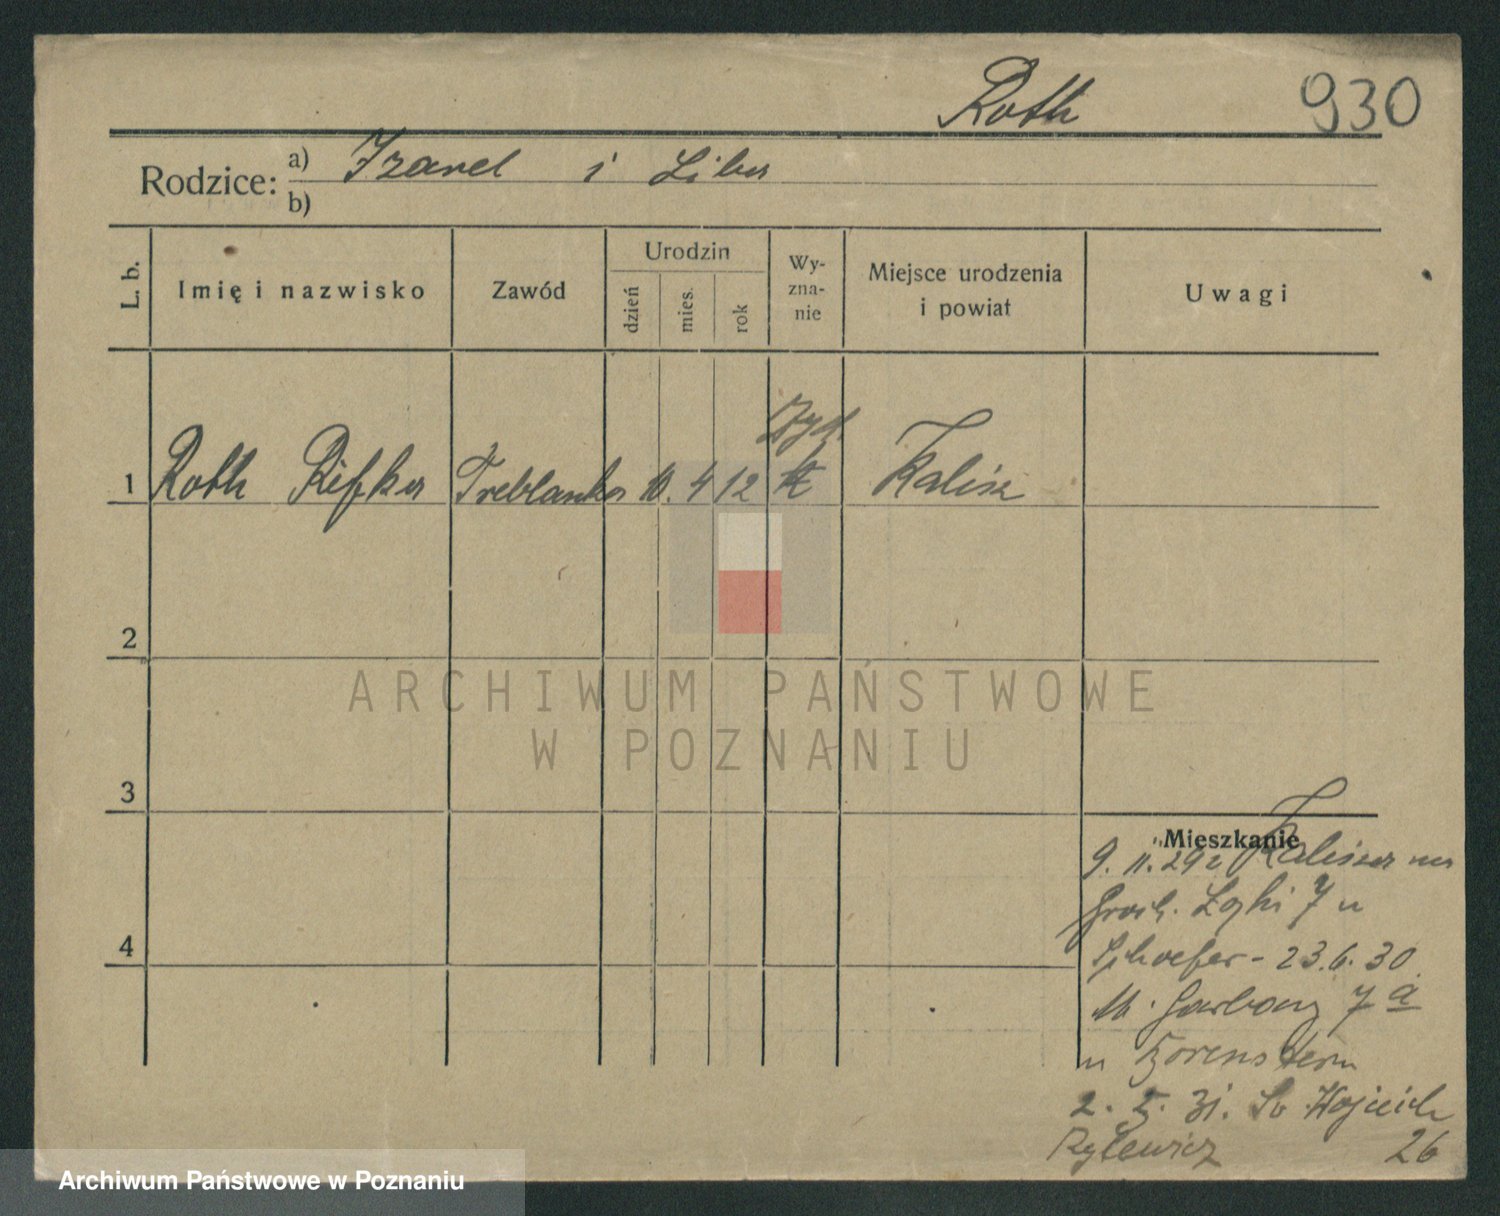 Roth 930
Rodzice: a) Izrael i Liba
b)
L. b. Imię i nazwisko Zawód Urodzin dzień mies. rok Wy-zna-nie Miejsce urodzenia i powiat Uwagi
1 Roth Rifka 10. 4 12 Kalisz
2
ARCHIWUM PAŃSTWOWE
W POZNANIU
3
Mieszkanie
9. 11. 29 z Kalisza na
Groch. Łąki 7 u
Schoefer - 23.6.30.
M. Garbary 7a
u
2. 5. 31. Św. Wojciech
26
4
Archiwum Państwowe w Poznaniu